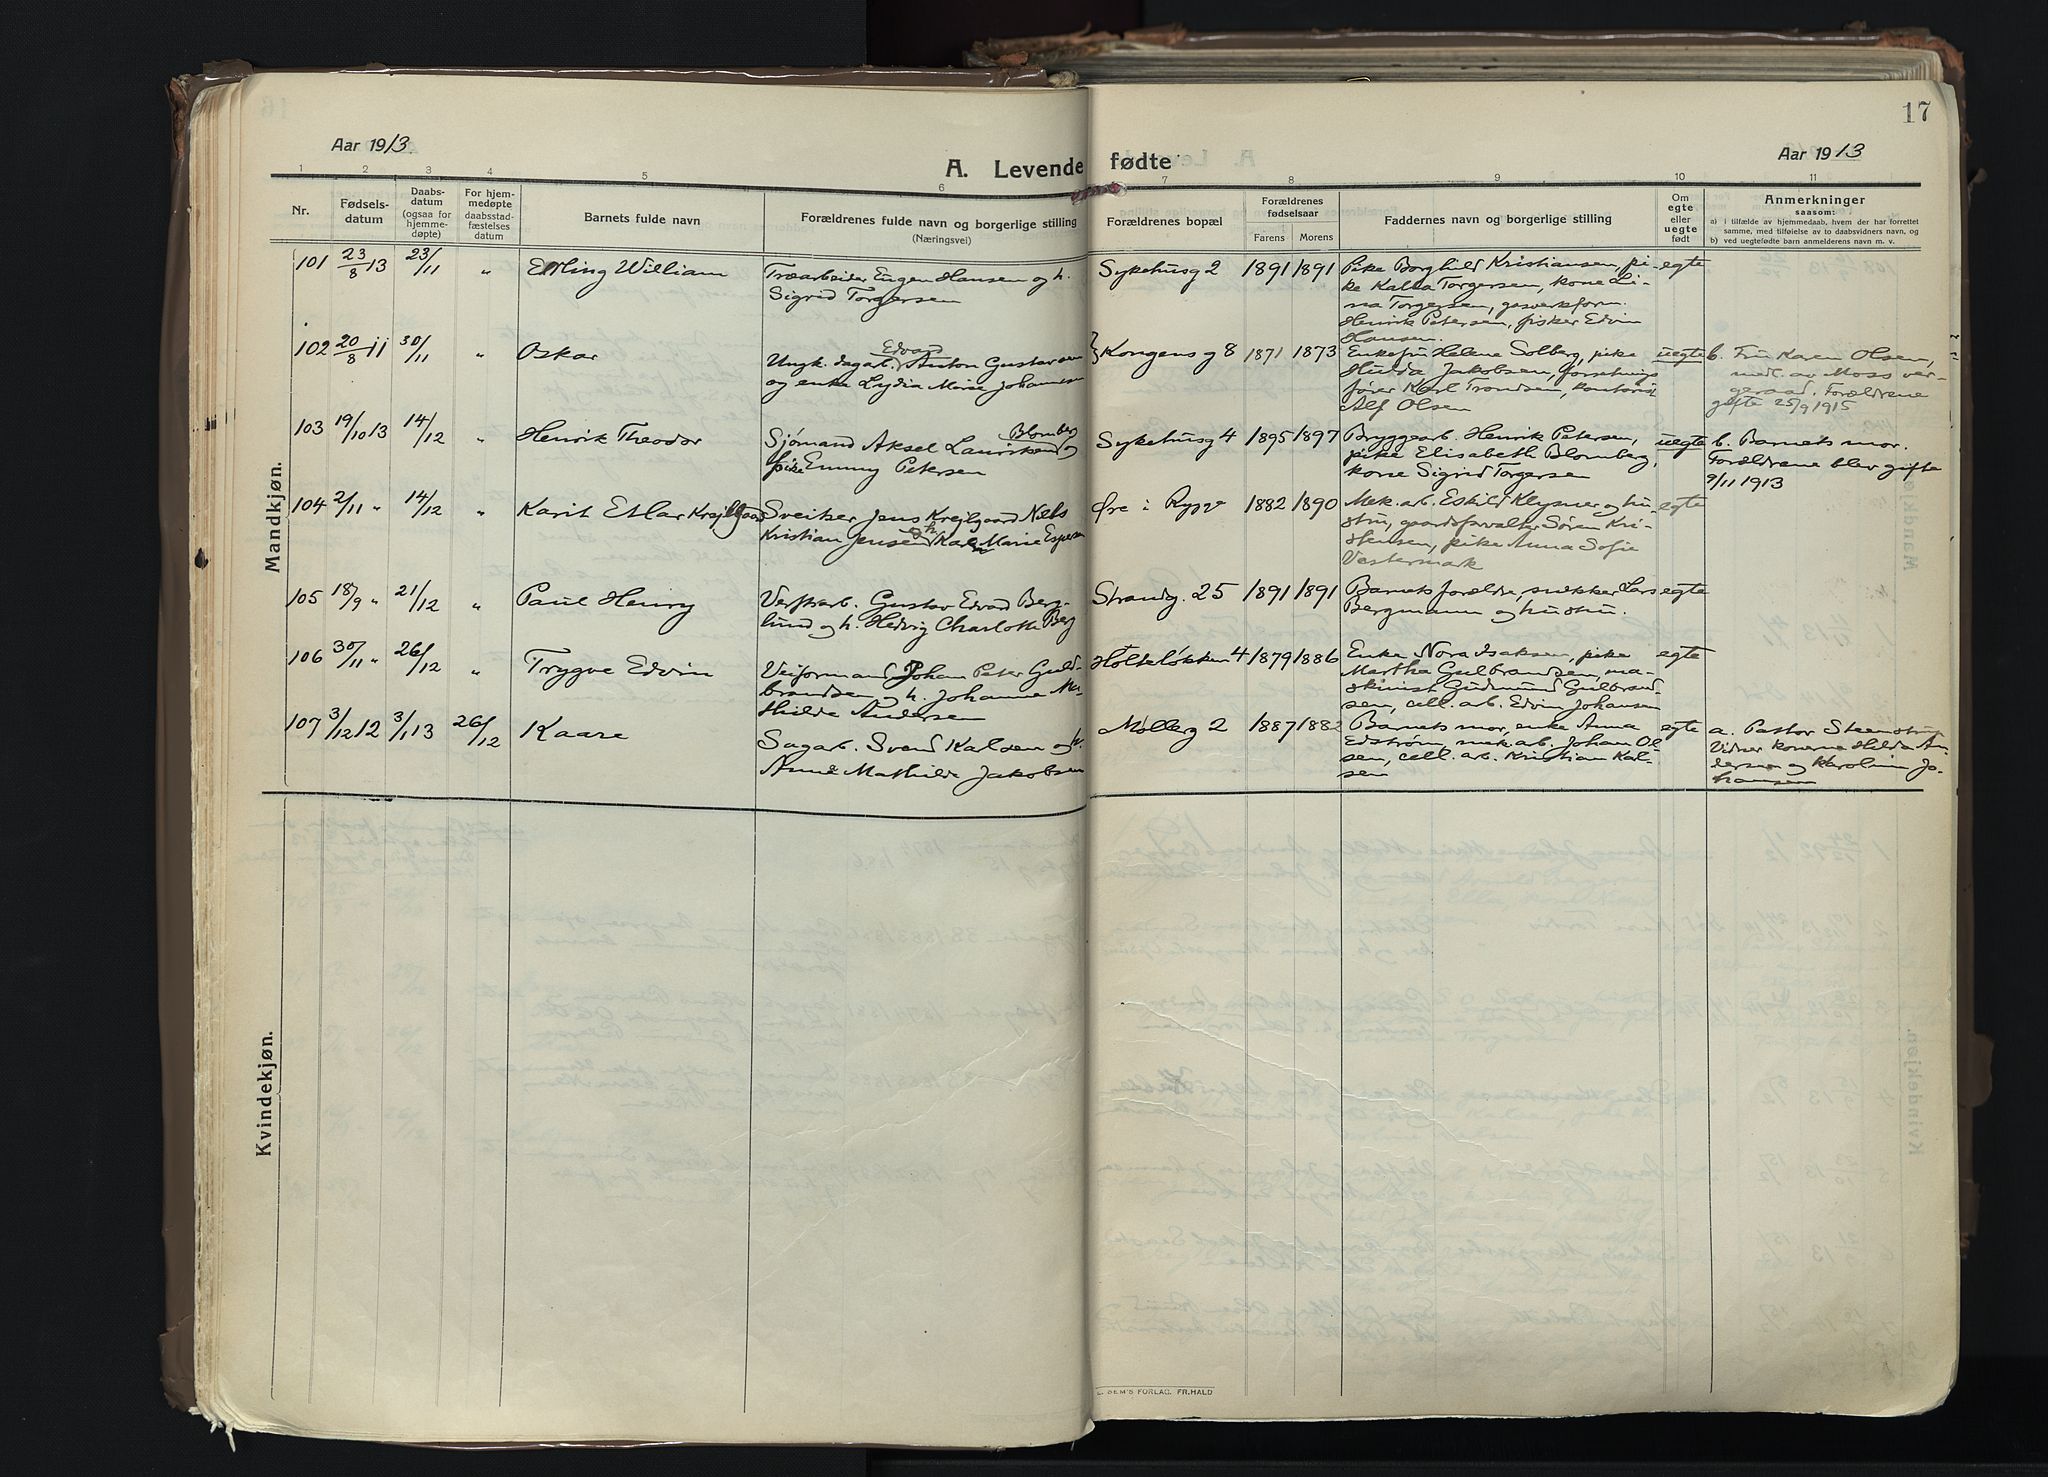 17
Aar 1913
Aar 1913
A. Levende fødte
1 2 3 4 5 6 7 8 9 10 11
Nr.
Fødsels-
datum
Daabs-
datum
(ogsaa for
hjemme-
døpte)
For hjem-
medøpte
daabsstad-
fæstelses
datum
Barnets fulde navn
Forældrenes fulde navn og borgerlige stilling
(Næringsvei)
Forældrenes bopæl
Forældrenes
fødselsaar
Farens Morens
Faddernes navn og borgerlige stilling
Om
egte
eller
uegte
født
Anmerkninger
saasom:
a) i tilfælde av hjemmedaab, hvem der har forrettet
samme, med tilføielse av to daabsvidners navn, og
b) ved uegtefødte barn anmelderens navn m. v.
Mandkjøn.
101 23/8 13 23/11 " Erling William
Træarbeider Eugen Hansen og h.
Sigrid Torgersen
Sykehusg 2 1891 1891
Pike Borghild Kristiansen, pi-
ke Kalla Torgersen, kone Li-
na Torgersen, gasverksform.
Henrik Petersen, fisker Edvin
Hansen.
egte
102 20/8 11 30/11 " Oskar
Edvard
Ungk. dagarb. Anton Gustavsen
og enke Lydia Marie Johannesen
Kongensg 8 1871 1873
Enkefru Helene Solberg, pike
Hulda Jakobsen, forretnings
fører Karl Trondsen, kontorist
Alf Olsen
uegte
b. Fru Karen Olsen,
medl. av Moss ver-
geraad. Forældrene
gifte 25/9 1915
103 19/10 13 14/12 " Henrik Theodor
Blomberg
Sjømand Aksel Lauritsen og
pike Emmy Petersen
Sykehusg 4 1895 1897
Bryggearb. Henrik Petersen,
pike Elisabeth Blomberg,
kone Sigrid Torgersen
uegte
b. Barnets mor.
Forældrene blev gifte
9/11 1913
104 2/11 " 14/12 " Karit Etlar Krejlgaard
Sveitser Jens Krejlgaard Niels
Kristian Jensen og h. Karen Marie Espersen
Øre i Rygge 1882 1890
Mek. arb. Eskild Klysner og hu-
stru, gaardsforvalter Søren Kri-
stensen, pike Anna Sofie
Vestermark
egte
105 18/9 " 21/12 " Paul Henry
Verkstarb. Gustav Edvard Berg-
lund og h. Hedvig Charlotte Berg
Strandg. 25 1891 1891
Barnets forældre, snekker Lars
Bergmann og hustru.
egte
106 30/11 " 26/12 " Trygve Edvin
Veiformand Johan Peter Guld-
brandsen og h. Johanne Ma-
thilde Andersen
Holteløkken 4 1879 1886
Enke Nora Isaksen, pike
Martha Gulbrandsen, ma-
skinist Gudmund Gulbrand-
sen, cell. arb. Edvin Johansen
egte
107 3/12 12 3/1 13 26/12 Kaare
Sagarb. Svend Karlsen og h.
Anne Mathilde Jakobsen
Møllerg 2 1887 1882
Barnets mor, enke Anna
Edstrøm, mek. arb. Johan Ol-
sen, cell. arb. Kristian Karl-
sen
egte
a. Pastor Steenstrup
Vidner konerne Hilda An-
dersen og Karoline Jo-
hansen
Kvindekjøn.
SEM'S FORLAG. FR.HALD